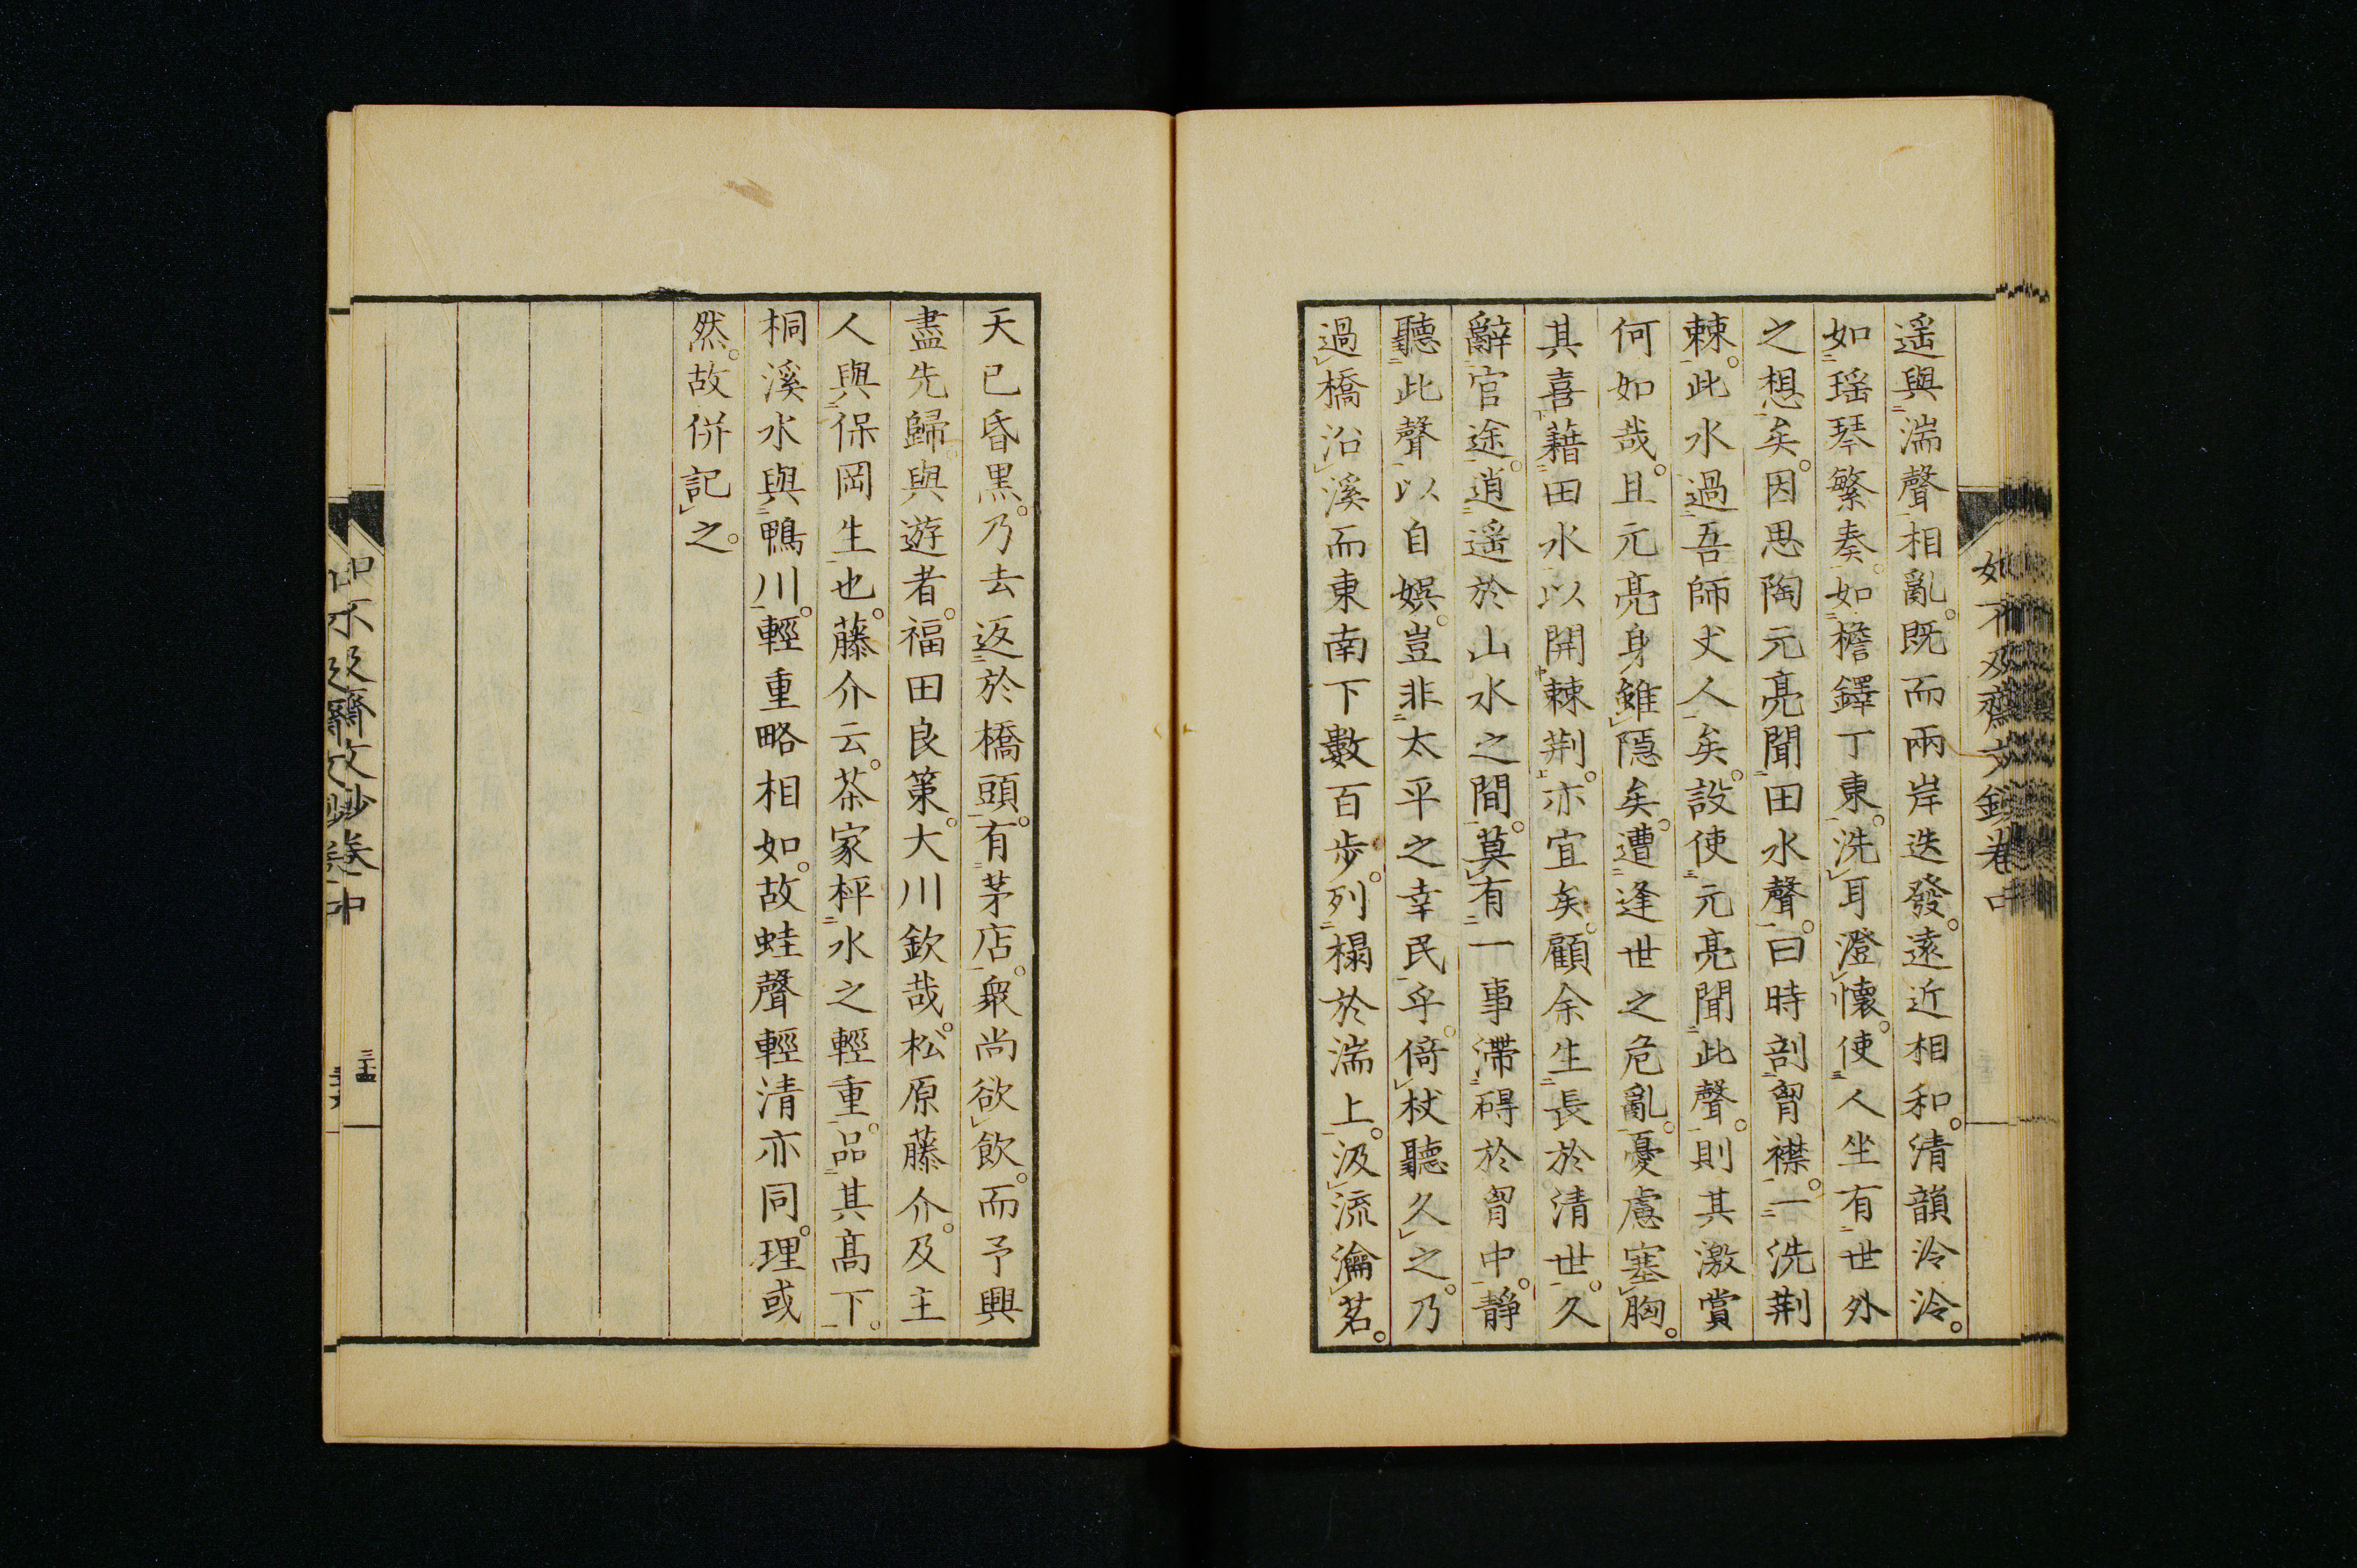 遥與湍聲相亂。既而兩岸迭發。遠近相和。清韻泠泠。
如瑶琴繁奏。如檐鐸丁東。洗耳澄懷。使人坐有世外
之想矣。因思陶元亮聞田水聲。曰時剖胷襟。一洗荆
棘。此水過吾師丈人矣。設使元亮聞此聲。則其激賞
何如哉。且元亮身雖隱矣。遭逢世之危亂。憂慮塞胸。
其喜藉田水以開棘荆。亦宜矣。顧余生長於清世。久
辭官途。逍遥於山水之間。莫有一事滯碍於胷中。靜
聽此聲以自娯。豈非太平之幸民乎。倚杖聽久之。乃
過橋沿溪而東南下數百步。列榻於湍上。汲流瀹茗。
如不及齋文鈔卷中
天已昏黒。乃去返於橋頭。有茅店。衆尚欲飲。而予興
盡先歸。與遊者。福田良策。大川欽哉。松原藤介。及主
人與保岡生也。藤介云。茶家枰水之輕重。品其髙下。
桐溪水與鴨川。輕重略相如。故蛙聲輕清亦同。理或
然。故併記之。
如不及齋文鈔卷中